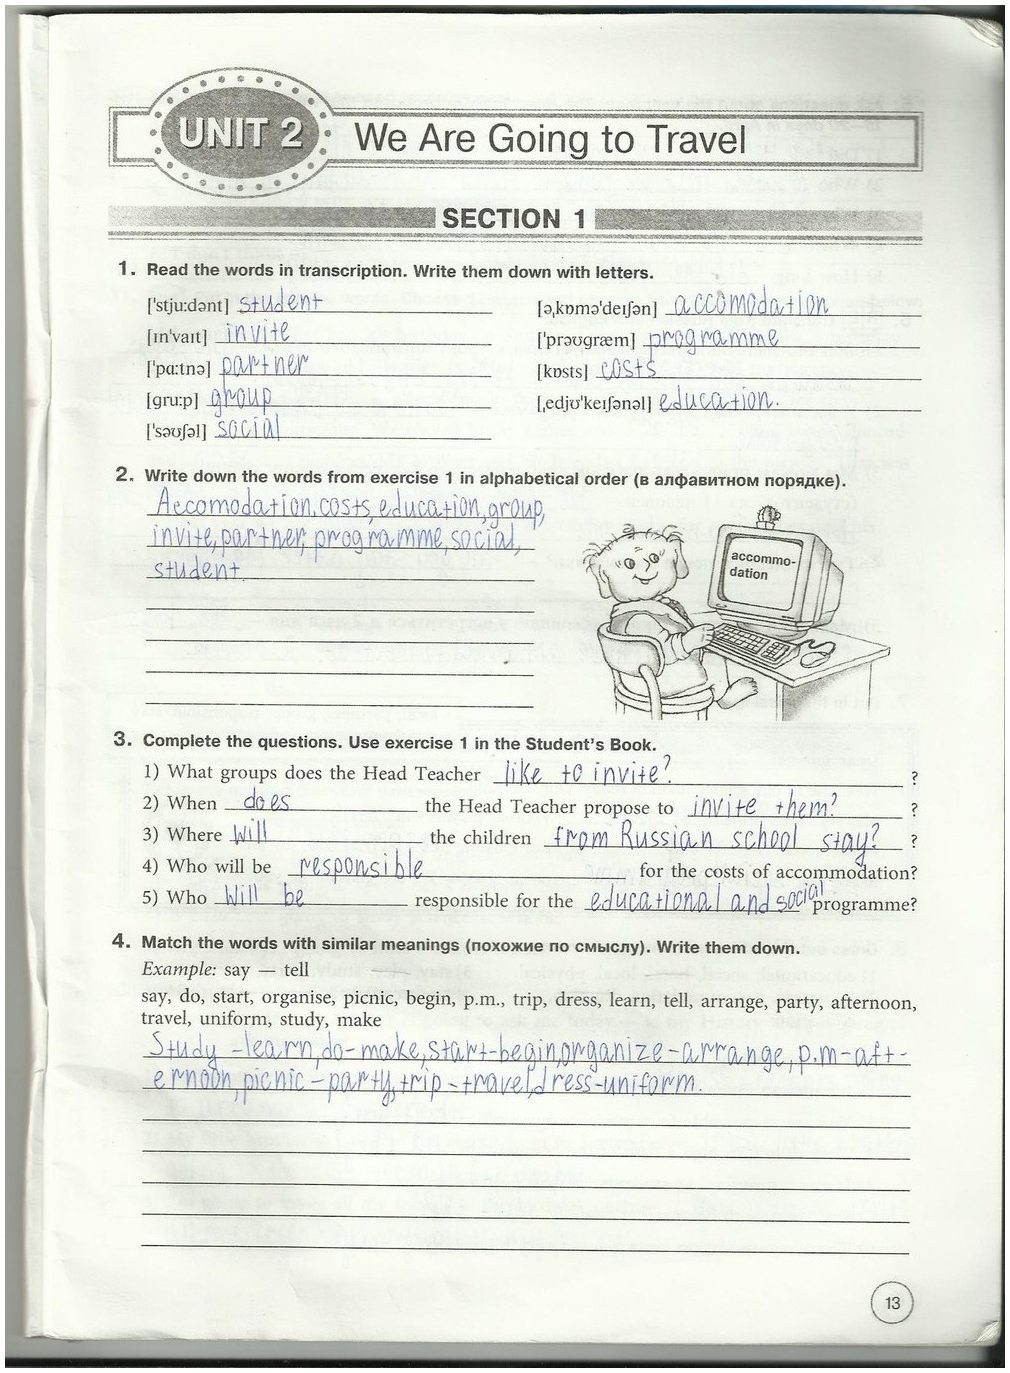 UNIT 2
We Are Going to Travel
SECTION 1
1. Read the words in transcription. Write them down with letters.
[ˈstju:dənt] student
[əˌkɒməˈdeɪʃən] accomodation
[ɪnˈvaɪt] invite
[ˈprəʊɡræm] programme
[ˈpɑ:tnə] partner
[kɒsts] costs
[gru:p] group
[ˌedjʊˈkeɪʃənəl] education.
[ˈsəʊʃəl] social
2. Write down the words from exercise 1 in alphabetical order (в алфавитном порядке).
Accomodation, costs, education, group,
invite, partner, programme, social,
student.
accommo-
dation
3. Complete the questions. Use exercise 1 in the Student's Book.
1) What groups does the Head Teacher like to invite? ?
2) When does the Head Teacher propose to invite them? ?
3) Where will the children from Russian school stay? ?
4) Who will be responsible for the costs of accommodation?
5) Who will be responsible for the educational and social programme?
4. Match the words with similar meanings (похожие по смыслу). Write them down.
Example: say — tell
say, do, start, organise, picnic, begin, p.m., trip, dress, learn, tell, arrange, party, afternoon,
travel, uniform, study, make
Study - learn, do - make, start - begin, organize - arrange, p.m - aft-
ernoon, picnic - party, trip - travel, dress - uniform.
13